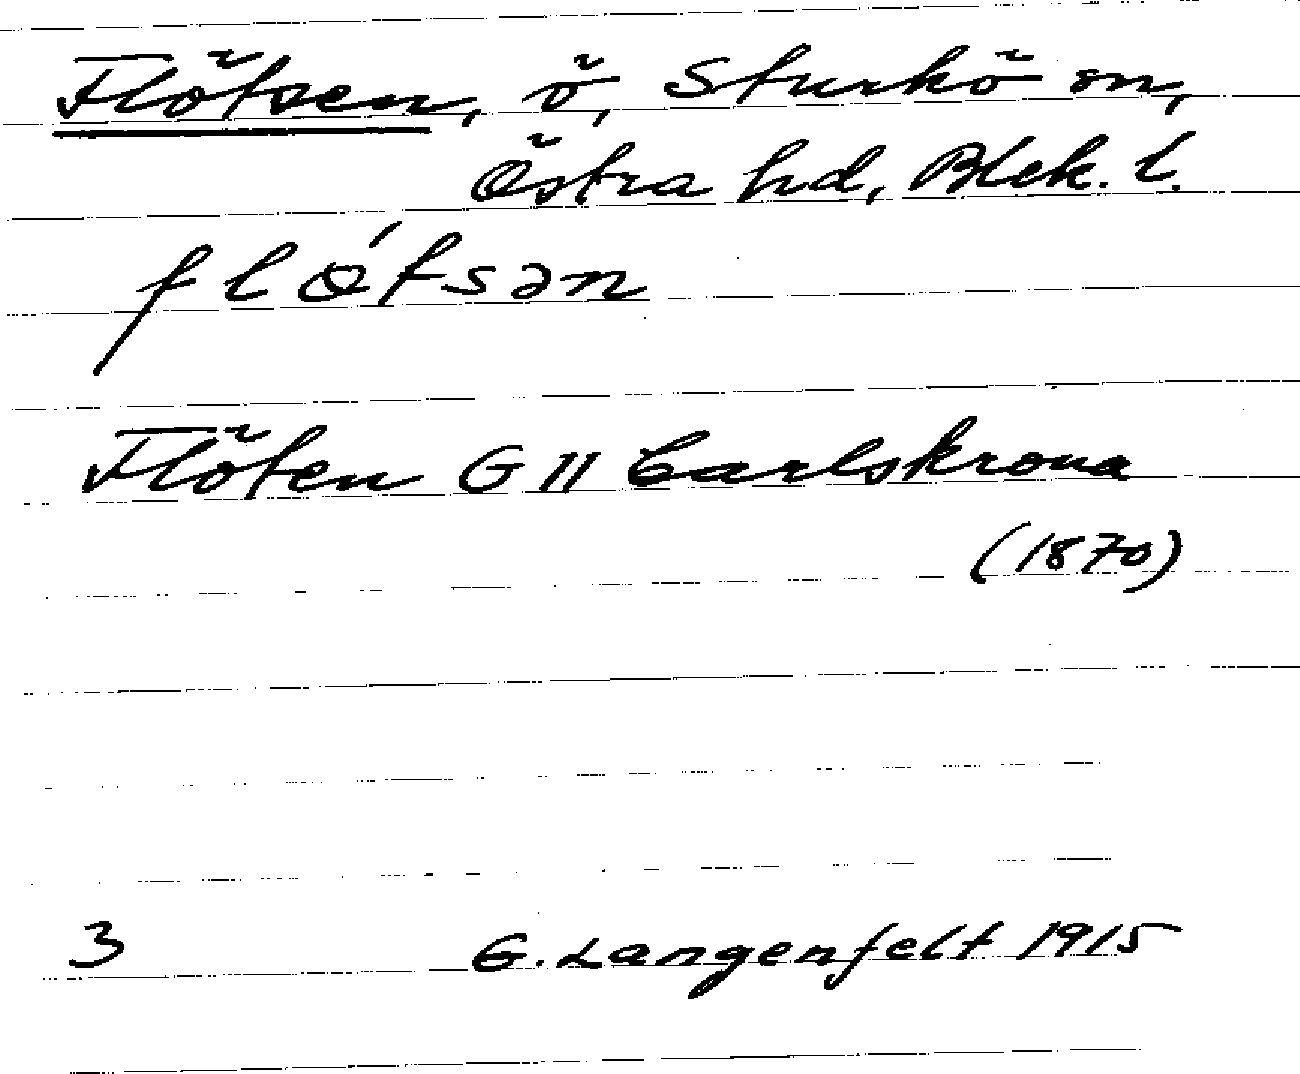 Flötsen, ö, Sturkö sn,
Östra hd, Blek. l.
flǿtsən
Flöten G 11 Carlskrona
(1870)
3 G. Langenfelt 1915